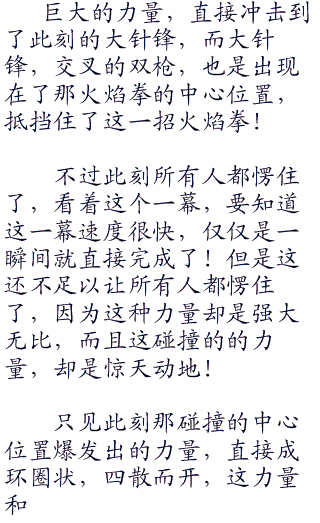 巨大的力量，直接冲击到
了此刻的大针锋，而大针
锋，交叉的双枪，也是出现
在了那火焰拳的中心位置，
抵挡住了这一招火焰拳！
不过此刻所有人都愣住
了，看着这个一幕，要知道
这一幕速度很快，仅仅是一
瞬间就直接完成了！但是这
还不足以让所有人都愣住
了，因为这种力量却是强大
无比，而且这碰撞的的力
量，却是惊天动地！
只见此刻那碰撞的中心
位置爆发出的力量，直接成
环圈状，四散而开，这力量
和